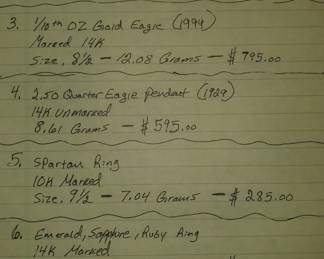 3. 1/10th OZ Gold Eagle (1999)
Marked 14K
Size, 8 1/2 - 12.08 Grams - $795.00
4. 2.50 Quarter Eagle Pendant (1929)
14K Unmarked
8.61 Grams - $595.00
5. Spartan Ring
10K Marked
Size, 9 1/2 - 7.04 Grams - $285.00
6. Emerald, Sapphire, Ruby Ring
14K Marked